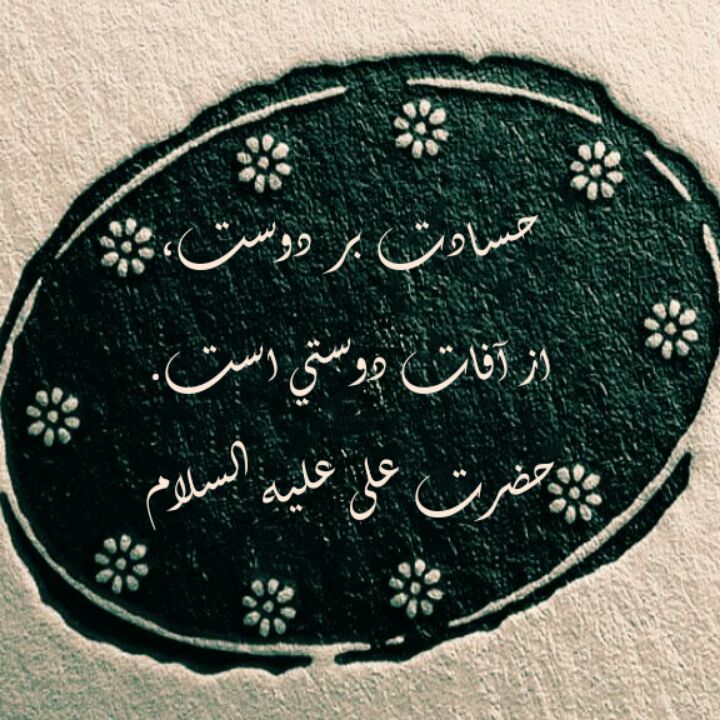 حسادت بر دوست،
از آفات دوستي است.
حضرت علی علیه السلام